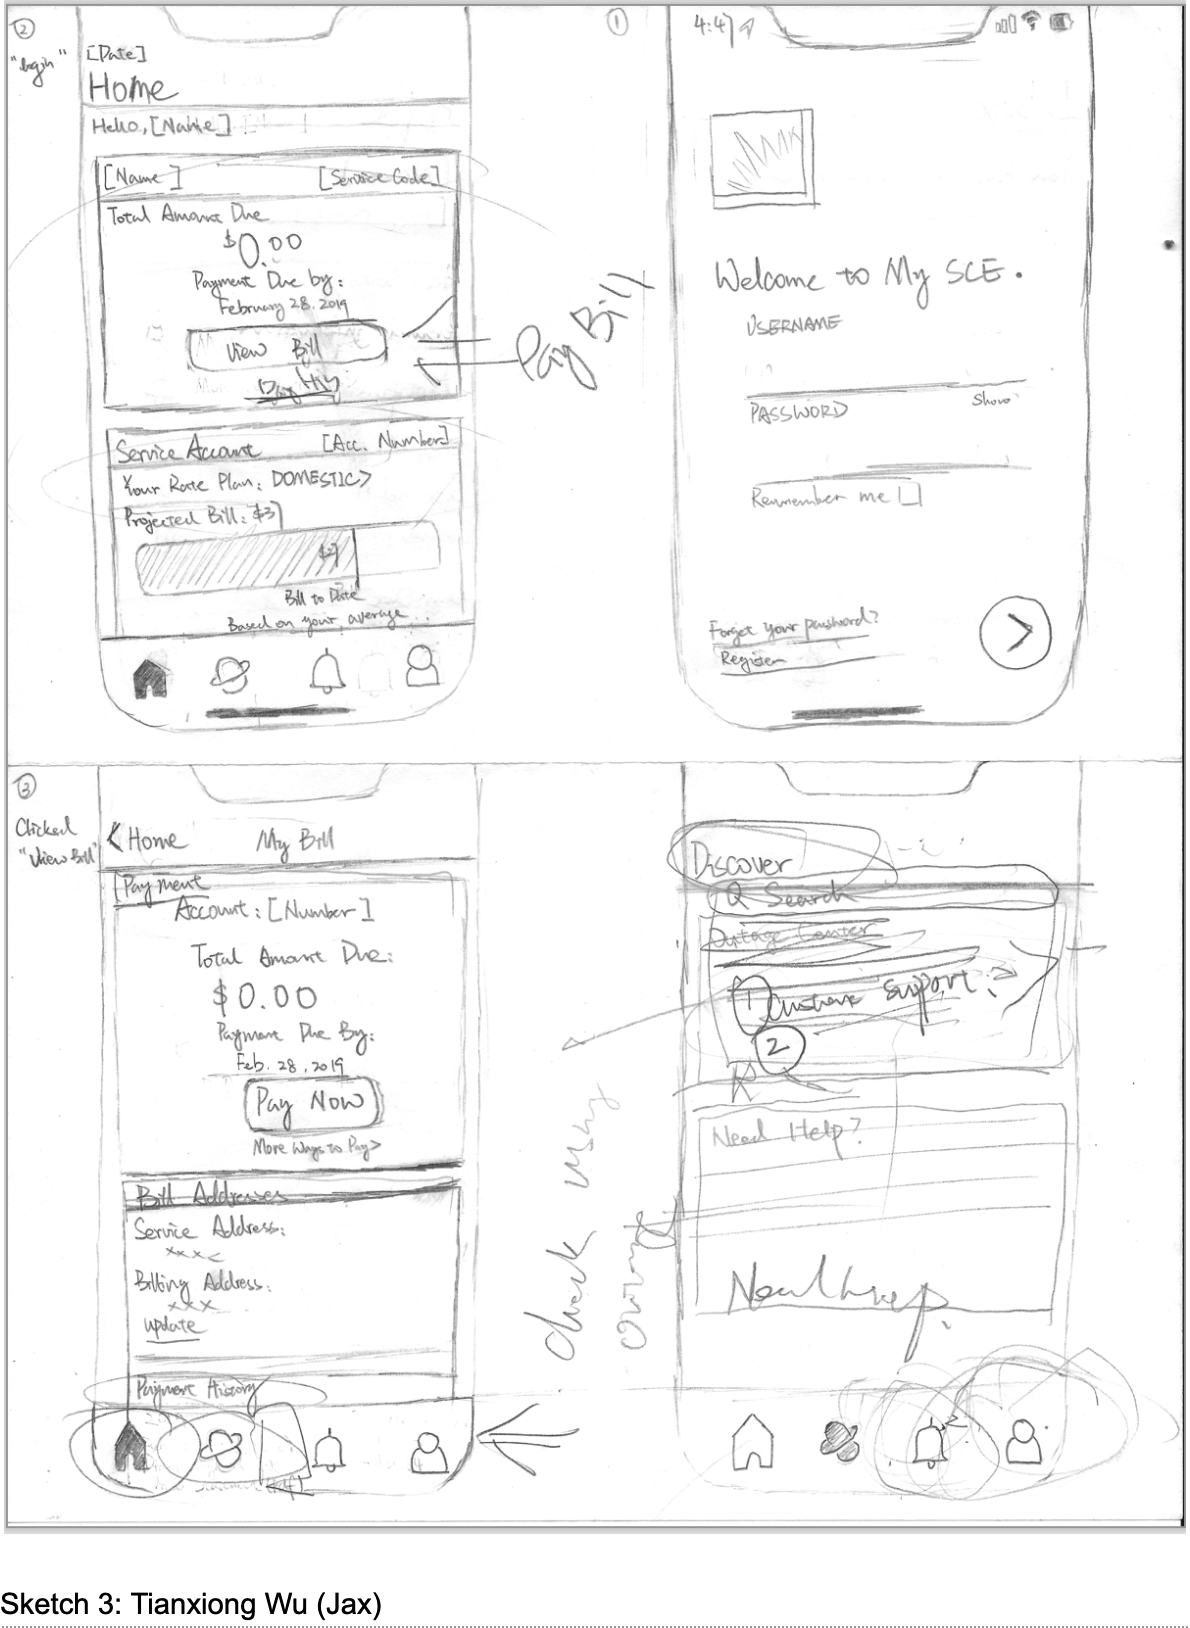 ②
"login"
[Date]
Home
Hello, [Name]
[Name] [Service Code]
Total Amount Due
$0.00
Payment Due by:
February 28. 2019
View Bill
Pay Bill
Service Account [Acc. Number]
Your Rate Plan: DOMESTIC>
Projected Bill: $31
Bill to Date
Based on your average...
①
4:47
Welcome to My SCE.
USERNAME
PASSWORD Show
Remember me
Forget your password?
Register
③
Clicked
"View Bill"
< Home My Bill
Payment
Account: [Number]
Total Amount Due:
$0.00
Payment Due By:
Feb. 28, 2019
Pay Now
More Ways to Pay>
Bill Addresses
Service Address:
xxxx
Billing Address:
xxx
update
Payment History
Discover
Search
Outage Center
1
support
2
Need Help?
Need help.
check
Sketch 3: Tianxiong Wu (Jax)